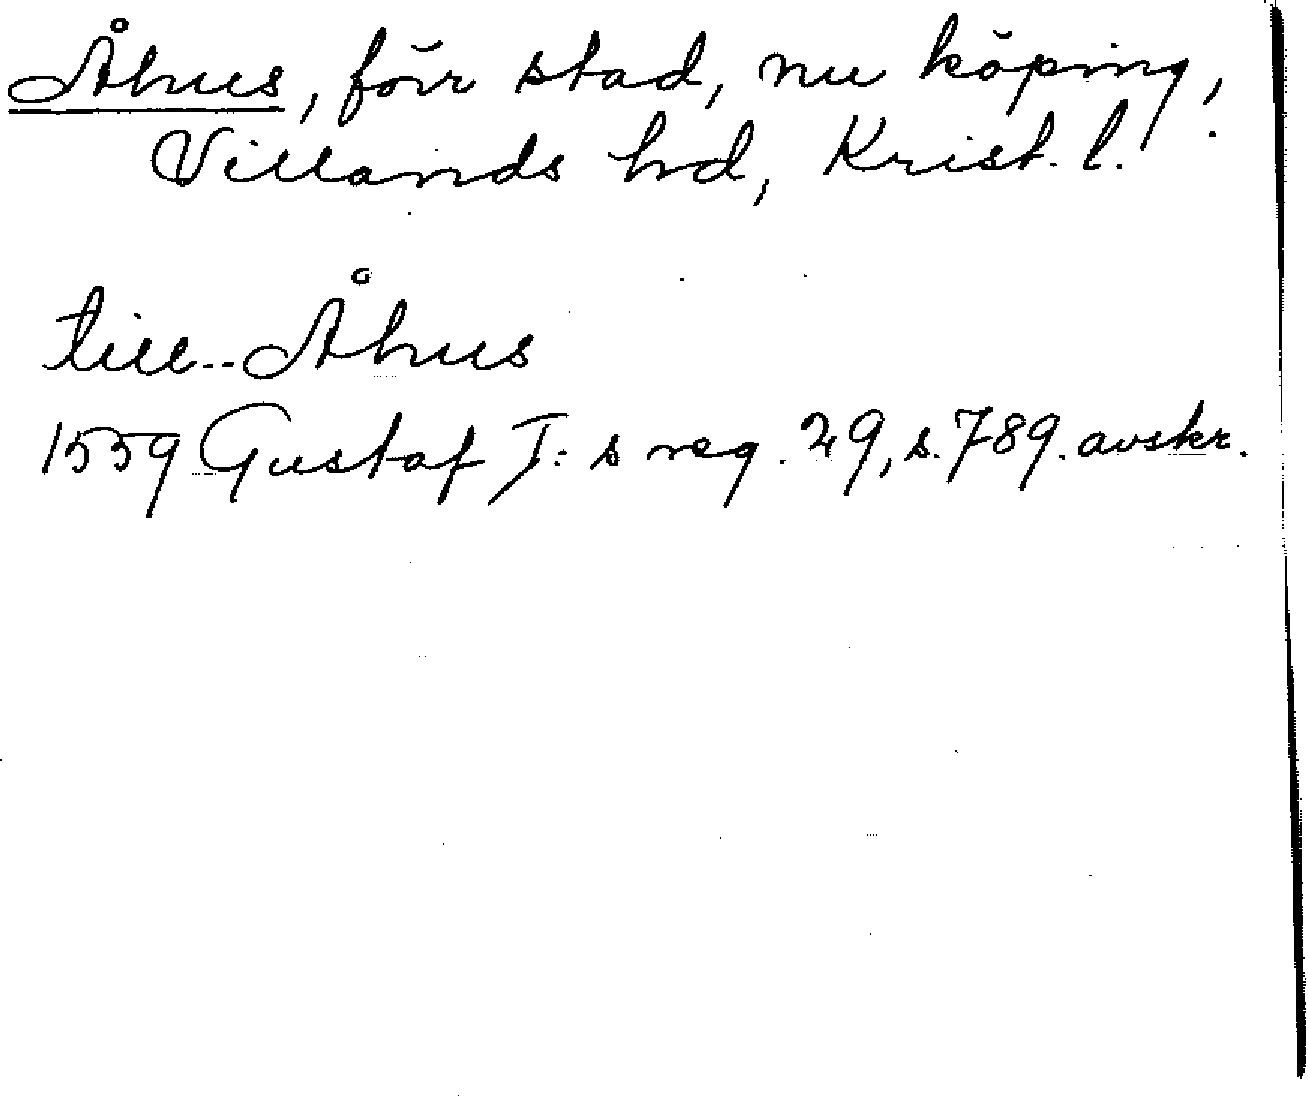 Åhus, förr stad, nu köping,
Villands hd, Krist. l.
till.. Åhus
1559 Gustaf I:s reg. 29, s. 789. avskr.